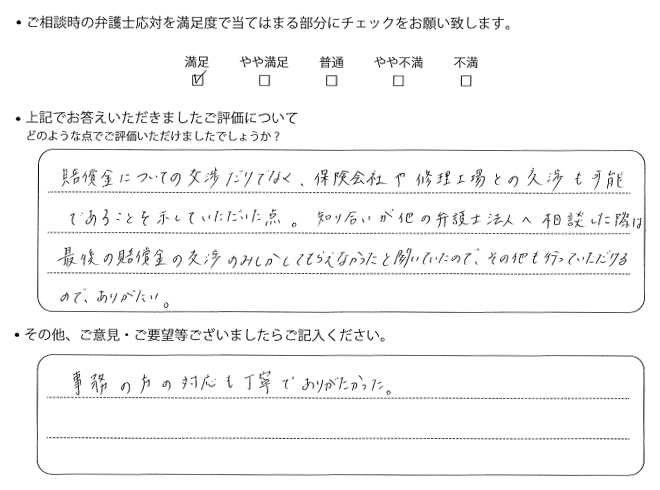 • ご相談時の弁護士応対を満足度で当てはまる部分にチェックをお願い致します。
満足 やや満足 普通 やや不満 不満
☑ □ □ □ □
• 上記でお答えいただきましたご評価について
どのような点でご評価いただけましたでしょうか？
賠償金についての交渉だけでなく、保険会社や修理工場との交渉も可能
であることを示していただいた点。知り合いが他の弁護士法人へ相談した際は
最後の賠償金の交渉のみしかしてもらえなかったと聞いていたので、その他も行っていただける
ので、ありがたい。
• その他、ご意見・ご要望等ございましたらご記入ください。
事務の方の対応も丁寧でありがたかった。